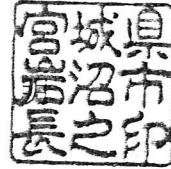 宮城県
岩沼市
長之印